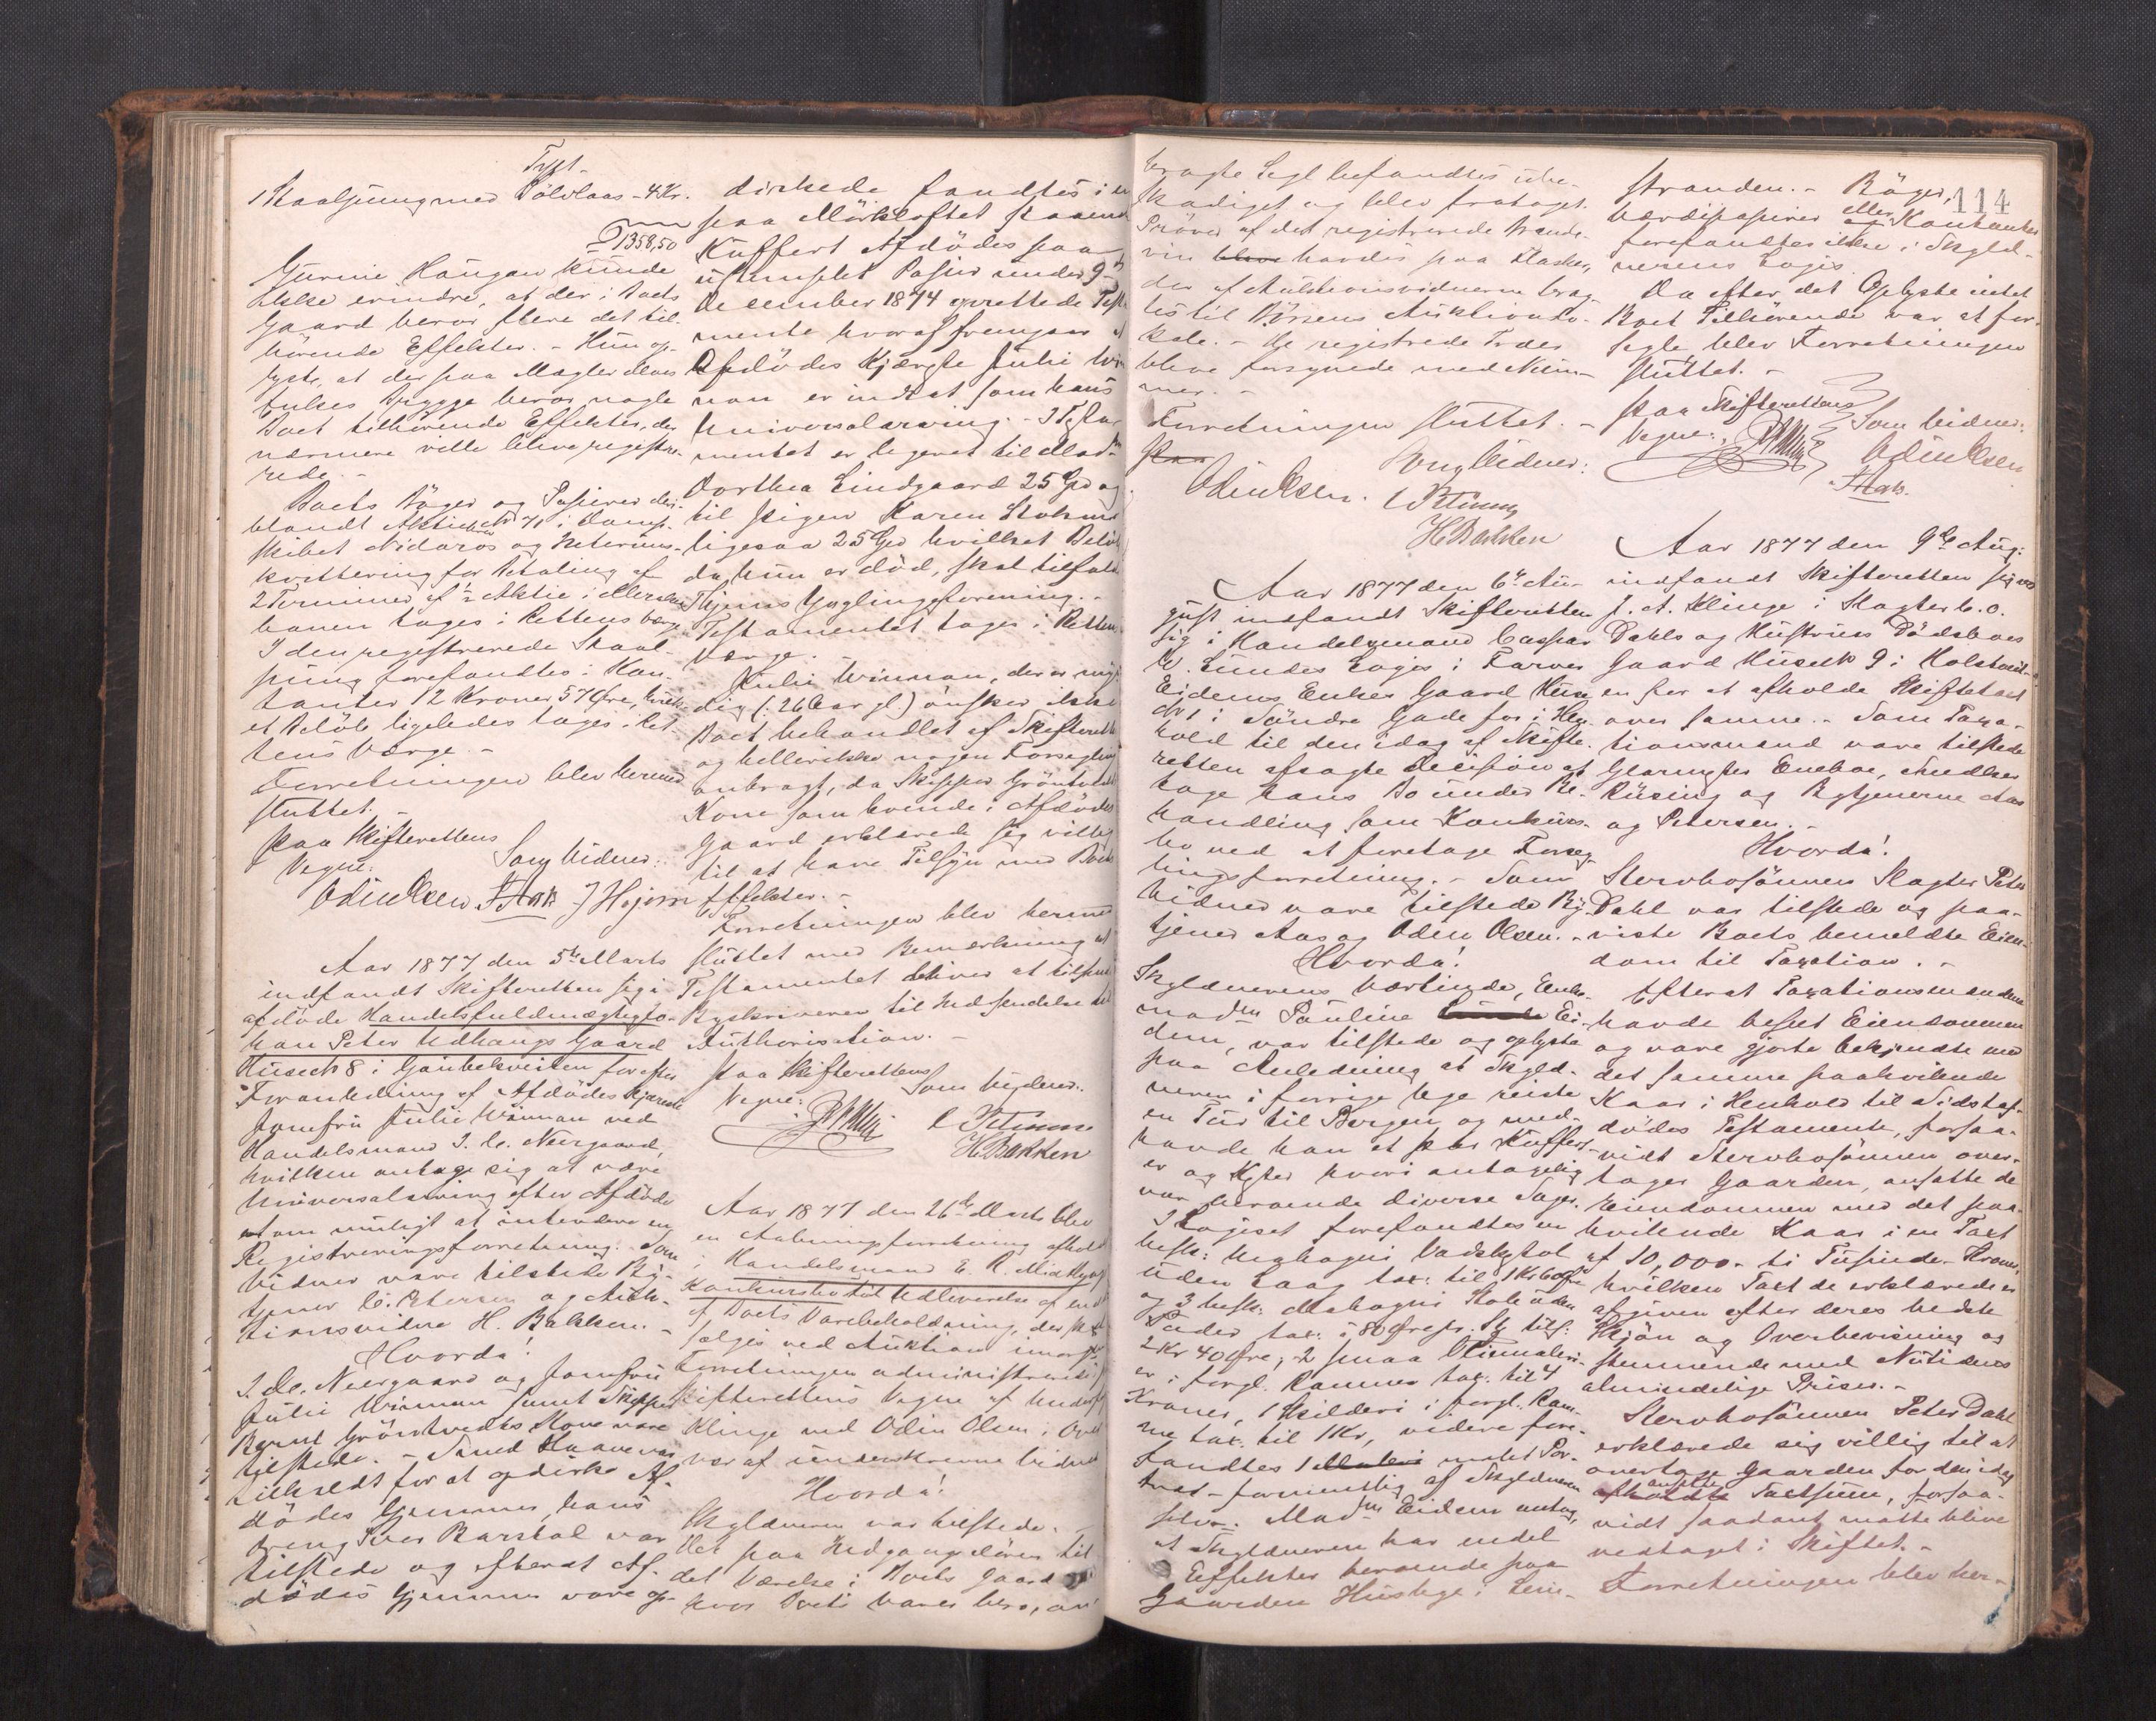 Trpt.
1 Staalpung med Sölvlaas - 4 Kr.
1358,50
Gurine Haugan kunde
ikke erindre, at der i Boets
Gaard beror flere det til-
hörende Effekter. - Hun op-
lyste, at der paa Mægler
Brygge beror nogle
Boet tilhörende Effekter, der
nærmere ville blive registre-
rede. -
Boets Böger og Papirer der-
blandt Aktiebrev No 71 i Damp-
skibet Nidaros og Interims-
kvittering for Betaling af
2 Terminer af ½ Aktie i
banen toges i Rettens Værge
I den registrerede Staal-
pung forefandtes i Kon-
tanter 12 Kroner 57 Öre, hvilk-
et Belöb ligeledes toges i Ret-
tens Værge. -
Forretningen blev hermed
sluttet. -
paa Skifterettens
Vegne: Som Vidner:
Odin Olsen J Hojem
Aar 1877 den 5te Marts
indfandt Skifteretten sig i
afdöde Handelsfuldmægtig Jo-
han Peter Udhaugs Gaard
Huus No 8 i Gaubekveiten for efter
Foranledning af Afdödes Kjæreste
Jomfru Julie Winman ved
Handelsmand I. C. Neergaard,
hvilken antager sig at være
Universalarving efter Afdöde
om muligt at intendere en
Registreringsforretning. Som
Vidner vare tilstede By-
tjener C. Petersen og Auk-
tionsvidne H. Bakken. -
Hvorda!
I. C. Neergaard og Jomfru
Julie Winman samt Skipper
Bernt Gröntvedts Kone vare
tilstede. - Smed Haave var
tilkaldt for at opdirke Af-
dödes Gjemmer, hans
Dreng Iver Barstal var
tilstede og efterat Af-
dödes Gjemmer vare op-
dirkede fandtes i en
paa Mörkloftet staaende
Kuffert Afdödes paa
ustemplet Papir under 9de
December 1874 oprettede Testa-
mente hvoraf fremgaar at
Afdödes Kjæreste Julie Win-
man er indsat som hans
Universalarving. - I Testa-
mentet er legeret til Madm
Dorthea Lindgaard 25 Spd og
til Pigen Karen Stokmo
ligesaa 25 Spd hvilket Belöb
da hun er död, skal tilfalde
Ynglingeforening. -
Testamentet toges i Rettens
Værge. -
Julie Winman, der er myn-
dig (: 26 Aar gl.) önsker ikke
Boet behandlet af Skifteretten
og hellerikke nogen Forsegling
anbragt, da Skipper Gröntvedts
Kone som boende i Afdödes
Gaard erklærede sig villig
til at have Tilsyn med Boets
Effekter. -
Forretningen blev hermed
sluttet med Bemærkning at
Testamentet bliver at tilsende
Byskriveren til Indsendelse til
Authorisation. -
paa Skifterettens
Vegne: Som Vidner:
C Petersen
H Bakken
Aar 1877 den 26de Marts blev
en Aabningsforretning afholdt
i Handelsmand E. R.
Konkursbo til Udleverelse af endel
af Boets Varebeholdning, der skal
sælges ved Auktion imorgen
Forretningen administreredes i
Skifterettens Vegne af
Klinge med Odin Olsen i Over-
vær af underskrevne Vidner
Hvorda!
Skyldneren var tilstede. -
Det paa Indgangsdören til
det Værelse i Boets Gaard
hvor Boets Varer bero, an-
bragte Segl befandtes ube-
skadiget og blev frataget.
Pröver af det registrerede Brænde-
vin havdes paa Flasker,
der af Auktionsvidnerne brag-
tes til Börsens Auktionslo-
kale. - De registrerede Fade
bleve forsynede med Num-
mer. -
Forretningen sluttet. -
Som Vidner:
Odin Olsen. C Petersen
H Bakken
Aar 1877 den 6te Au-
gust indfandt Skifteretten
sig i Handelsmand Caspar
E. Lundes Logis i Farver
Eidems Enkes Gaard Huus
No 1 i Söndre Gade for i Hen-
hold til den idag af Skifte-
retten afsagte Decision at
tage hans Bo under Be-
handling som Konkurs-
bo ved at foretage Forseg-
lingsforretning. - Som
Vidner vare tilstede By-
tjener Aas og Odin Olsen. -
Hvorda!
Skyldnerens Værtinde, Enke-
madm Pauline Ei-
dem, var tilstede og oplyste
paa Anledning at Skyld-
neren i forrige Uge reiste
en Tur til Bergen og med-
havde han et par Kuffert-
er og Kister hvori antagelig
var beroende diverse Sager.
I Logiset forefandtes en
besk: Mahogni Vadskestol
uden Laag tax: til 1 Kr 60 Öre
og 3 besk: Mahogni Stole uden
Puder tax: à 80 Öre pr. St tils:
2 Kr 40 Öre, 2 smaa Oliemaleri-
er i forgl. Rammer tax. til 4
Kroner, 1 Skilderi i forgl. Ram-
me tax: til 1 Kr, videre fore-
fandtes 1 malet Por-
træt - formentlig af Skyldneren
selv. - Madm Eidem antog,
at Skyldneren har endel
Effekter beroende paa
Gaarden Huslege i Lein-
stranden. - Böger,
Værdipapirer eller Kontanter
forefandtes ikke i Skyld-
nerens Logis.
Da efter det Oplyste intet
Boet Tilhörende var at for-
segle blev Forretningen
sluttet. -
paa Skifterettens
Vegne: Som Vidner:
Odin Olsen
Aas.
114
Aar 1877 den 9de Aug:
indfandt Skifteretten sig ved
J. A. Klinge i Slagter C. O.
Dahls og Hustrues Dödsboes
Gaard Huus No 9 i Holstveit-
en for at afholde Skiftetaxt
over samme. - Som Taxa-
tionsmænd vare tilstede
Glarmester Eneboe, Snedker
Rüsing og Bytjenerne Aas
og Petersen. -
Hvorda!
Stervbosönnen Slagter Peter
Dahl var tilstede og paa-
viste Boets bemeldte Eien-
dom til Taxation. -
Efterat Taxationsmændene
havde beseet Eiendommen
og vare gjorte bekjendte med
det samme paahvilende
Kaar i Henhold til sidst af-
dödes Testamente, forsaa-
vidt Stervbosönnen over-
tager Gaarden, ansatte de
Eiendommen med det paa-
hvilende Kaar i en Taxt
af 10,000 - ti Tusinde - Kroner,
hvilken Taxt de erklærede
afgiven efter deres bedste
Skjön og Overbevisning og
stemmende med Nutidens
almindelige Priser. -
Stervbosönnen Peter Dahl
erklærede sig villig til at
overtage Gaarden for den idag
ansatte Taxtsum, forsaa-
vidt saadant maatte blive
vedtaget i Skiftet. -
Forretningen blev her-